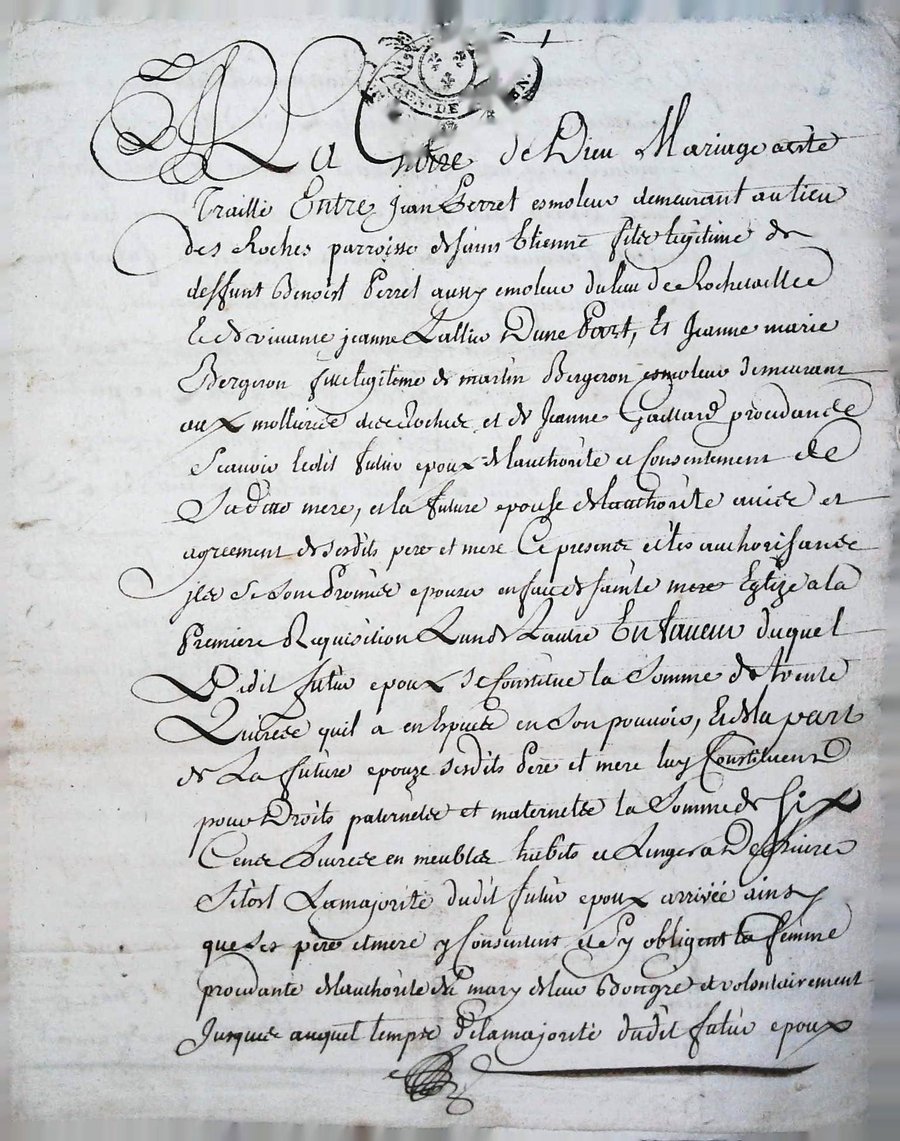 GEN. DE EN.
A La Gloire de Dieu Mariage a este
Traitté Entre Jean Perret esmoleur demeurant au lieu
des Roches parroisse de saint Etienne fils legitime de
deffunt Benoist Perret aussy emoleur du lieu de Rochetaillee
Et de vivante jeanne Lallier Dune Part, Et Jeanne marie
Bergeron fille legitime de martin Bergeron esmoleur demeurant
aux mollieres des Roches et de Jeanne Gaillard procedants
Scavoir ledit futur epoux de lauthorité et Consentement de
Sadite mere, et la future epouse de lauthorité avise et
agreement de sesdits pere et mere Ce presents et les authorisants
jls se sont Promis epouser en face de sainte mere Eglize a la
Premiere Requisition Lun de Lautre En faveur duquel
Ledit futur epoux se Constitue la Somme de trente
Livres quil a en Especes en Son pouvoir, Et de la part
de La future epouze sesdits Pere et mere luy Constituent
pour Droits paternels et maternels la Somme de Six
Cents Livres en meubles habits et Linge a
Sitost La majorité dudit futur epoux arrivée ainsy
que ses père et mere y Consentent et sy obligent la femme
procedante de lauthorité du mary de leur Bongre et volontairement
Jusques auquel temps de la majorité dudit futur epoux